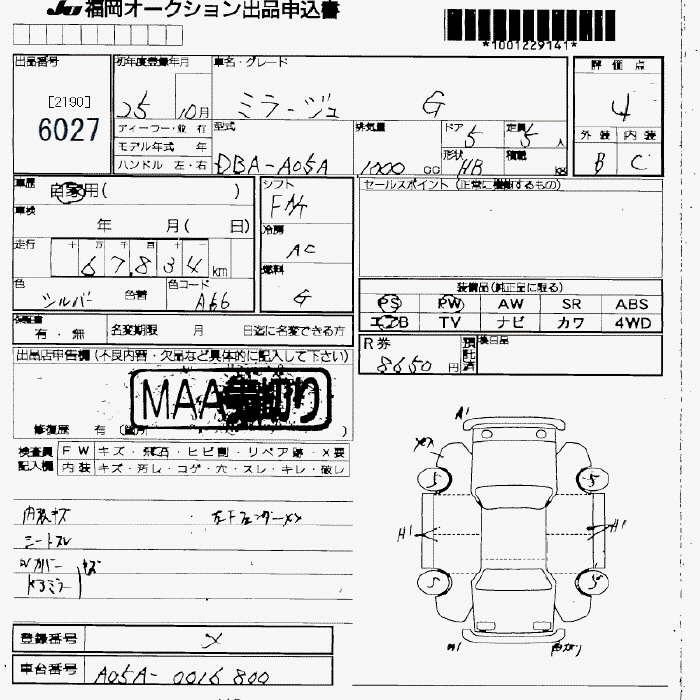 JU 福岡オークション出品申込書
*1001229141*
出品番号
[2190]
6027
初年度登録年月
25 10月
ディーラー・並 行
モデル年式 年
ハンドル 左・右
車名・グレード
ミラージュ G
型式
DBA-A05A
排気量
1000 CC
ドア 5
定員 5 人
形状 HB
積載 kg
評価点
4
外装 内装
B C
車歴
自家用( )
車検
年 月( 日)
走行
十 万 千 百 十
6 7,8 3 4 km
色
シルバー 色替
色コード
A66
シフト
FAT
冷房
AC
燃料
G
セールスポイント (正常に機能するもの)
装備品(純正品に限る)
PS PW AW SR ABS
エアB TV ナビ カワ 4WD
保証書
有・無
名変期限 月 日迄に名変できる方
R券
8650円
預託済
後日品
出品店申告欄 (不良内容・欠品など具体的に記入して下さい)
MAA
修復歴 有 (箇所 )
検査員記入欄
FW キズ・飛石・ヒビ割・リペア跡・X要
内装 キズ・汚し・コゲ・穴・スレ・キレ・破レ
内張キズ
左Fフェンダーメメ
シートスレ
キズ
登録番号 メ
車台番号 A05A-0016800
A1
5
5
H1
H1
5
5